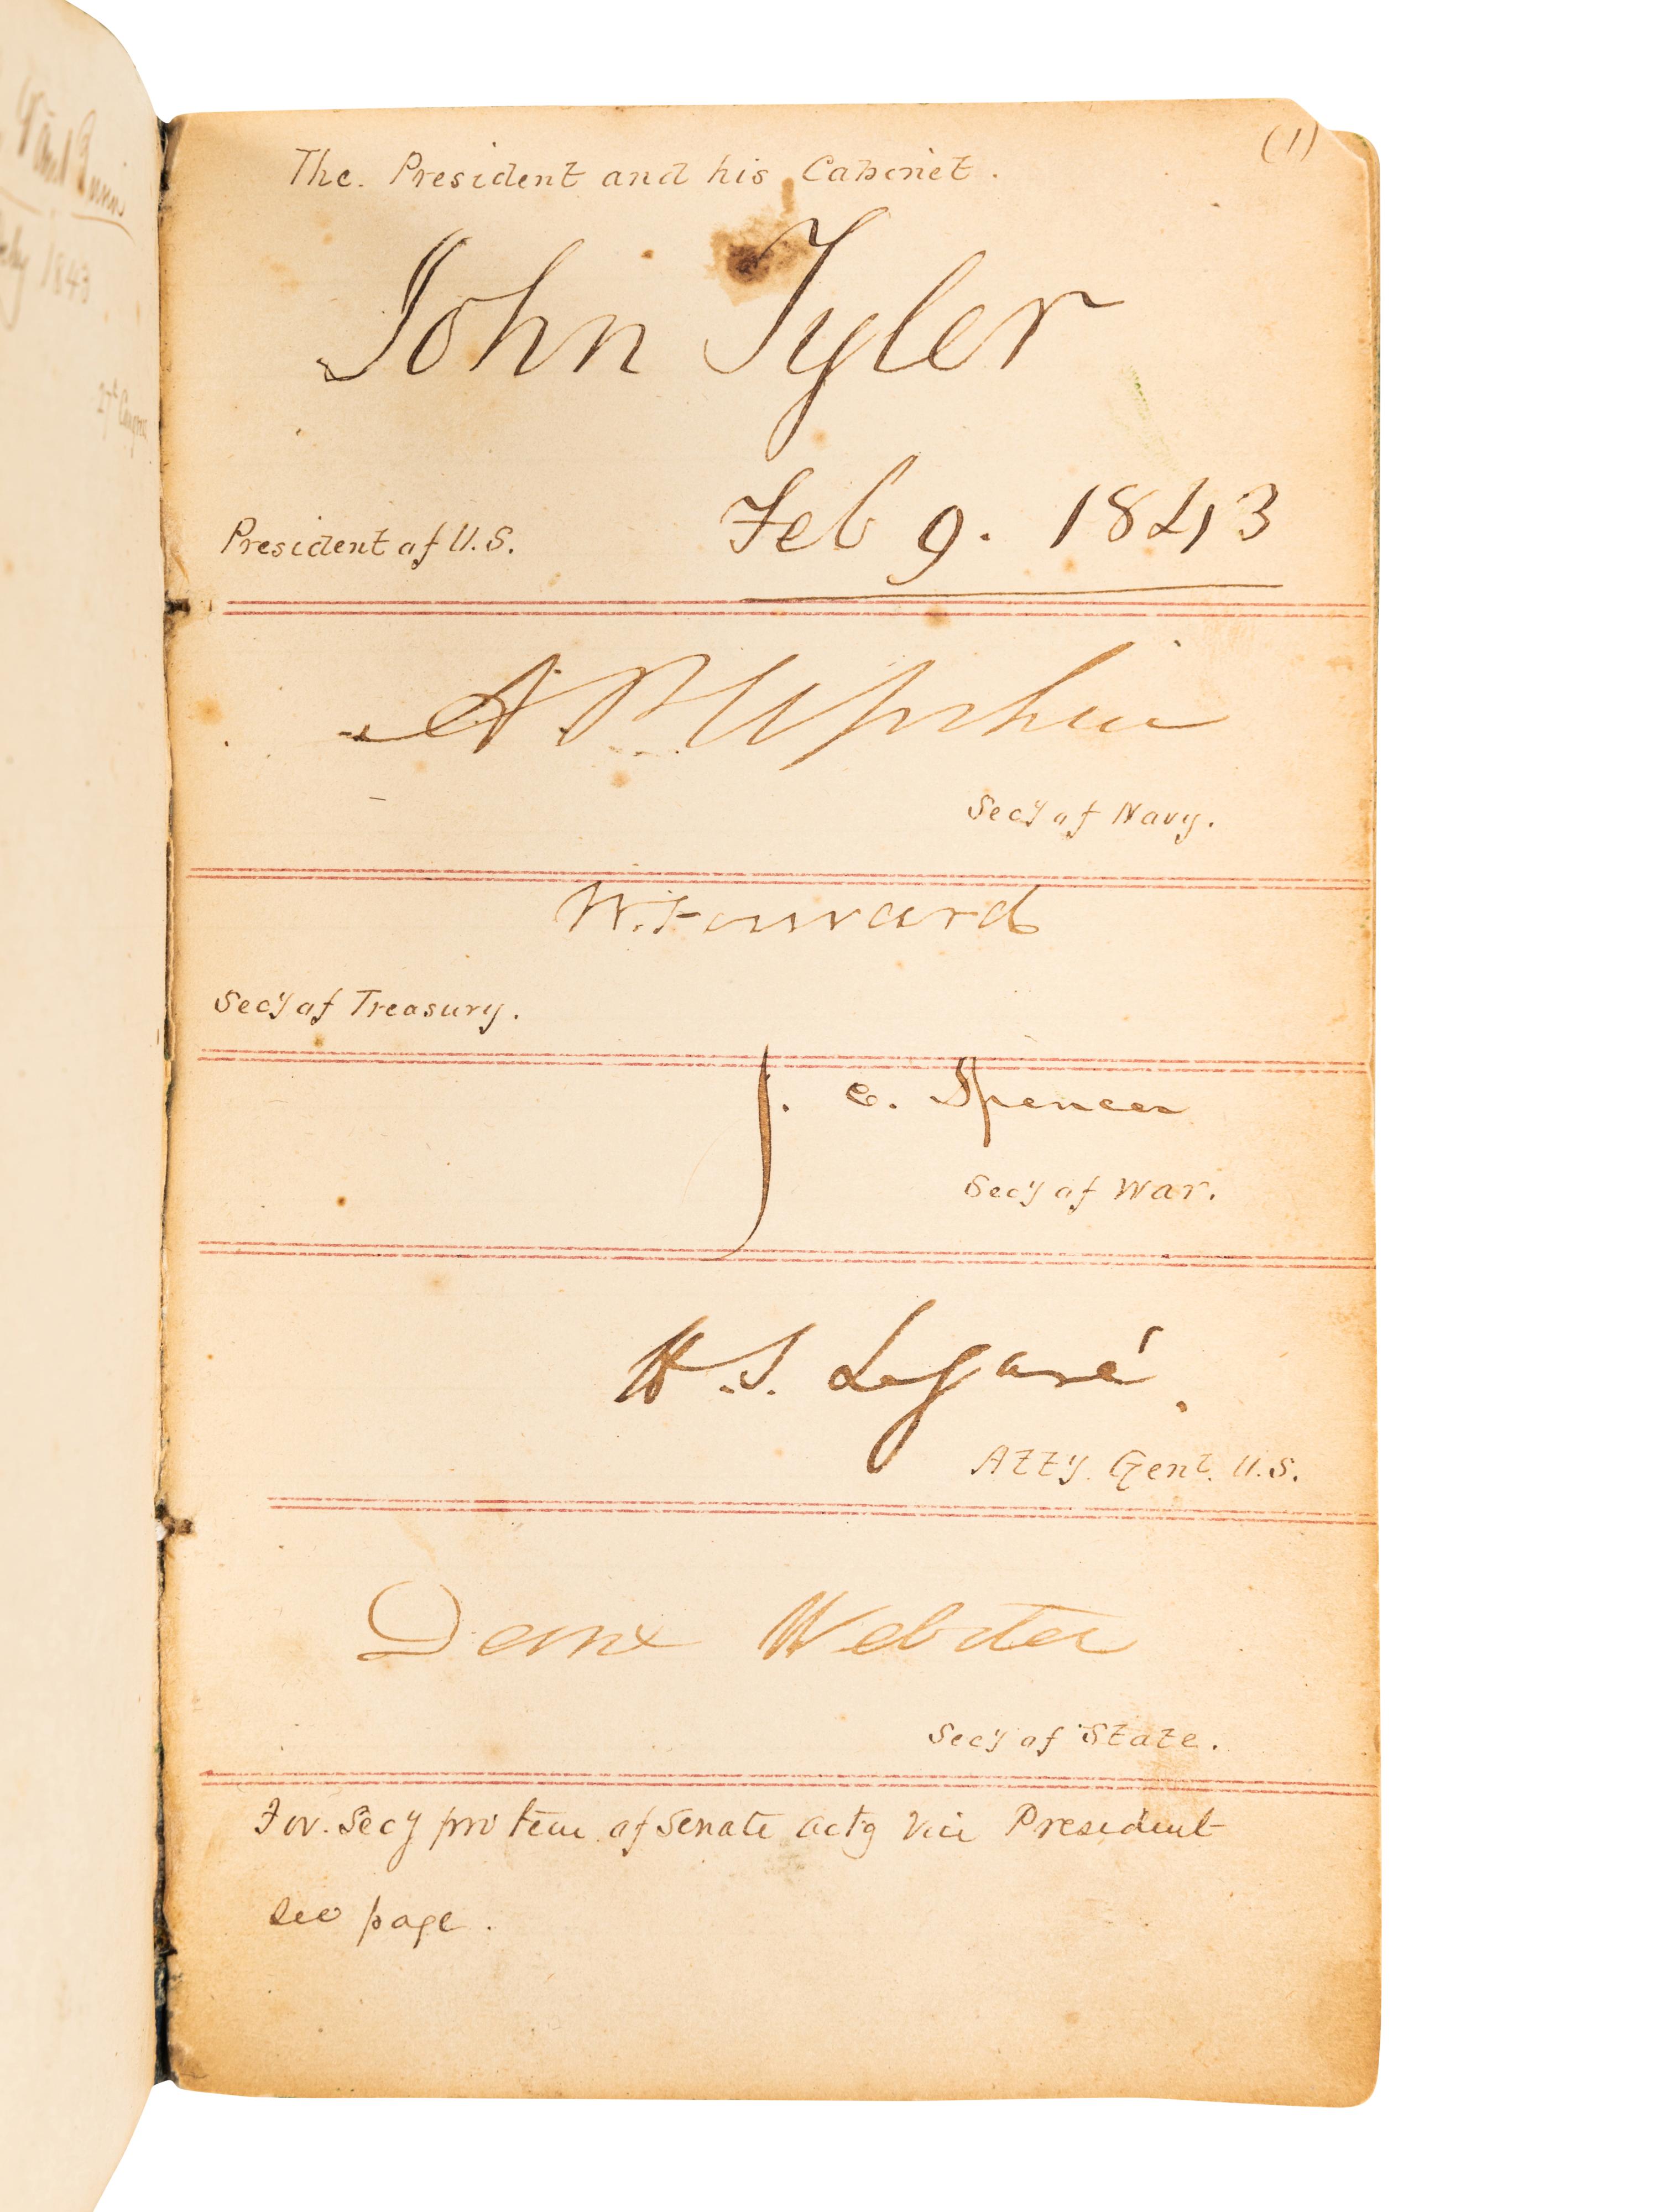 1843
27th Congress
(1)
The. President and his Cabinet.
John Tyler
Feb 9. 1843
President of U.S.
A. P. Upshur
Secy of Navy.
W. Forward
Secy of Treasury.
J. C. Spencer
Secy of War.
H. S. Legaré.
Atty. Genl. U.S.
Danl Webster
Secy of State.
For. Secy pro tem of Senate actg Vice President
see page.